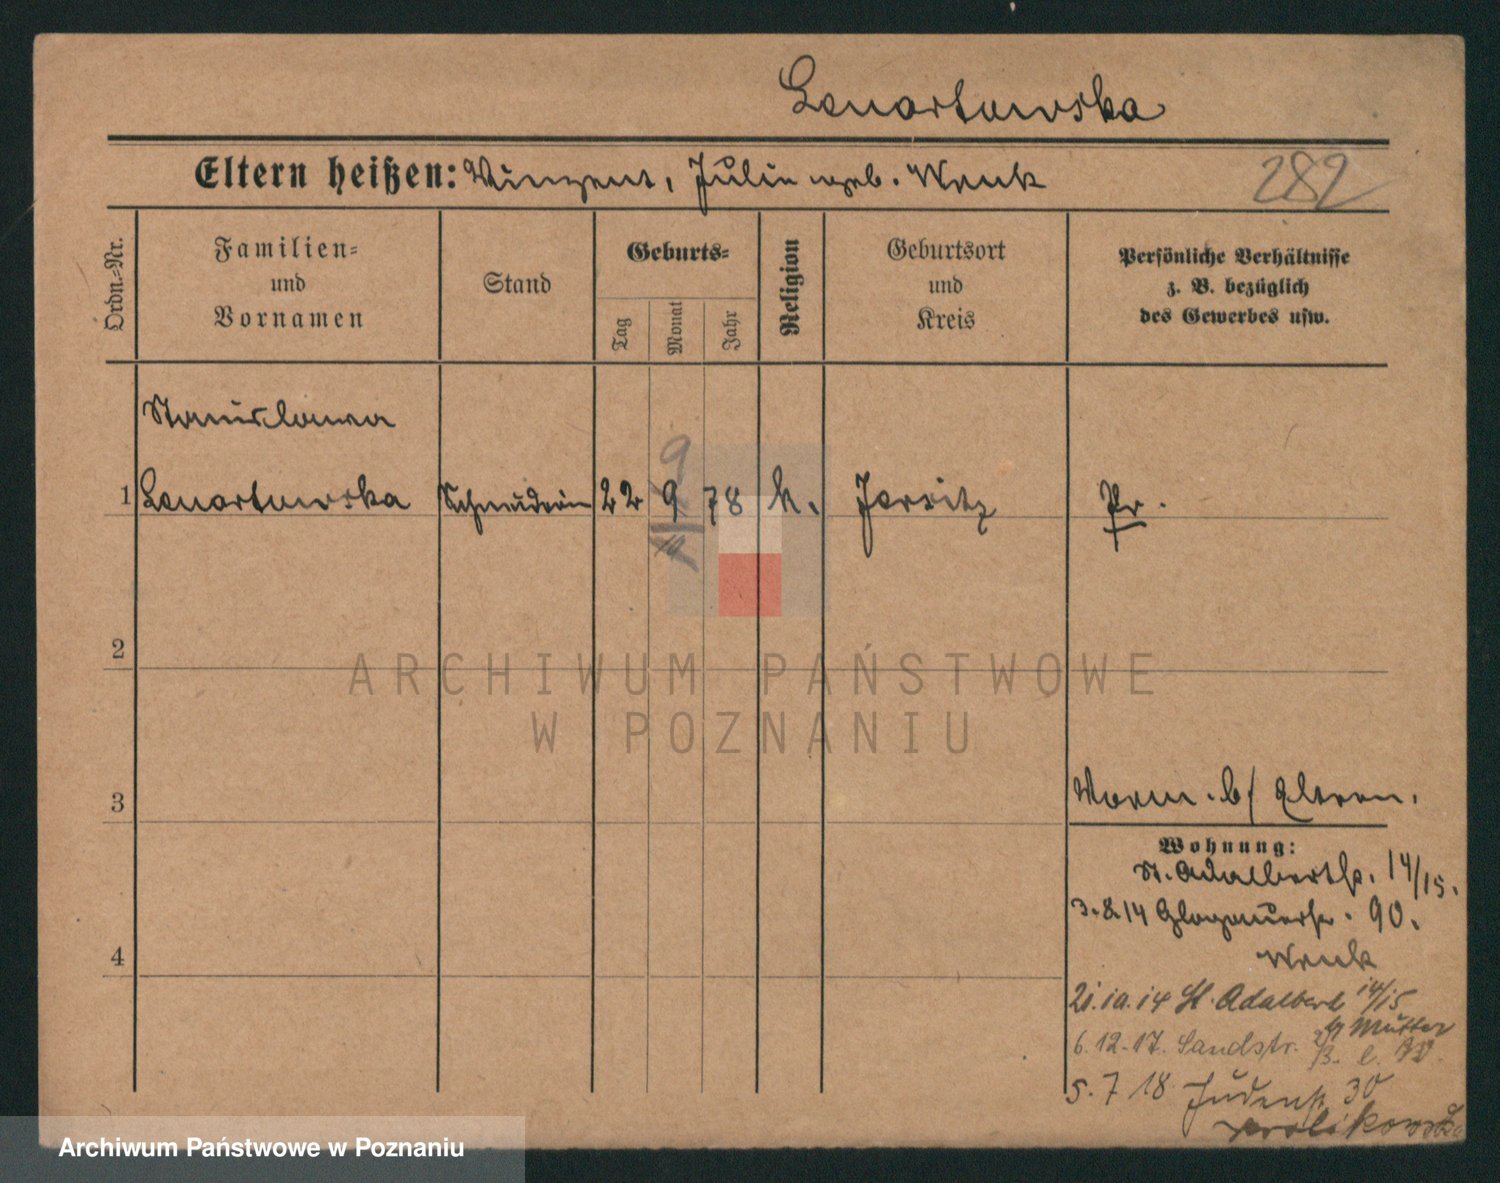 Lenartowska
Eltern heißen: Vinzent, Julie geb. Wenk
282
Ordn.-Nr.
Familien- und Vornamen
Stand
Geburts-
Tag
Monat
Jahr
Religion
Geburtsort und Kreis
Persönliche Verhältnisse
z. B. bezüglich
des Gewerbes usw.
Stanislawa
9
1 Lenartowska Schneiderin 22 9 78 k. Jersitz Pr.
10
2
ARCHIWUM PAŃSTWOWE
W POZNANIU
3
Worm. b/ Eltern.
Wohnung:
St. Adalbertstr. 14/15.
3.8.14 Glogauerstr. 90.
Wenk
4
21.10.14 St. Adalbert 14/15
b/ Mutter
6.12.17. Sandstr. 2
5.7 18 Judenstr. 30
Krolikowska
Archiwum Państwowe w Poznaniu